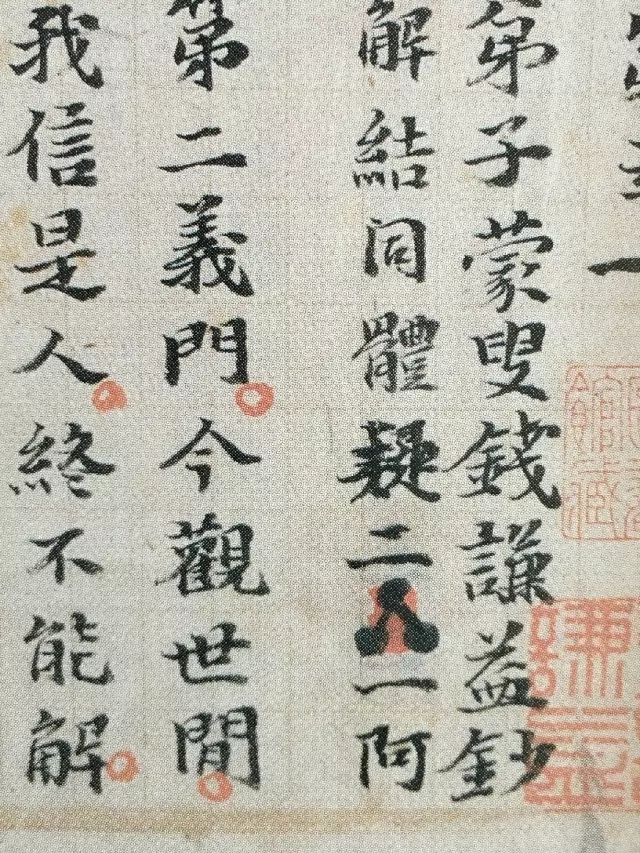 一
弟子蒙叟錢謙益鈔
解結同體疑二一阿
第二義門今觀世間
我信是人終不能解